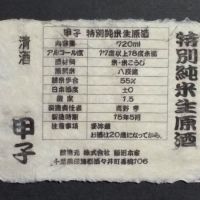 特別純米生原酒
甲子 特別純米生原酒
内容量 720ml
アルコール度 17度以上18度未満
原材料 米・米こうじ
原料米 八反錦
精米歩合 55%
日本酒度 ±0
酸度 1.5
製造年月 15年5月
要冷蔵
お酒は20歳になってから。
醸造元 株式会社 飯田本家
千葉県印旛郡酒々井町馬橋106
清酒
甲子